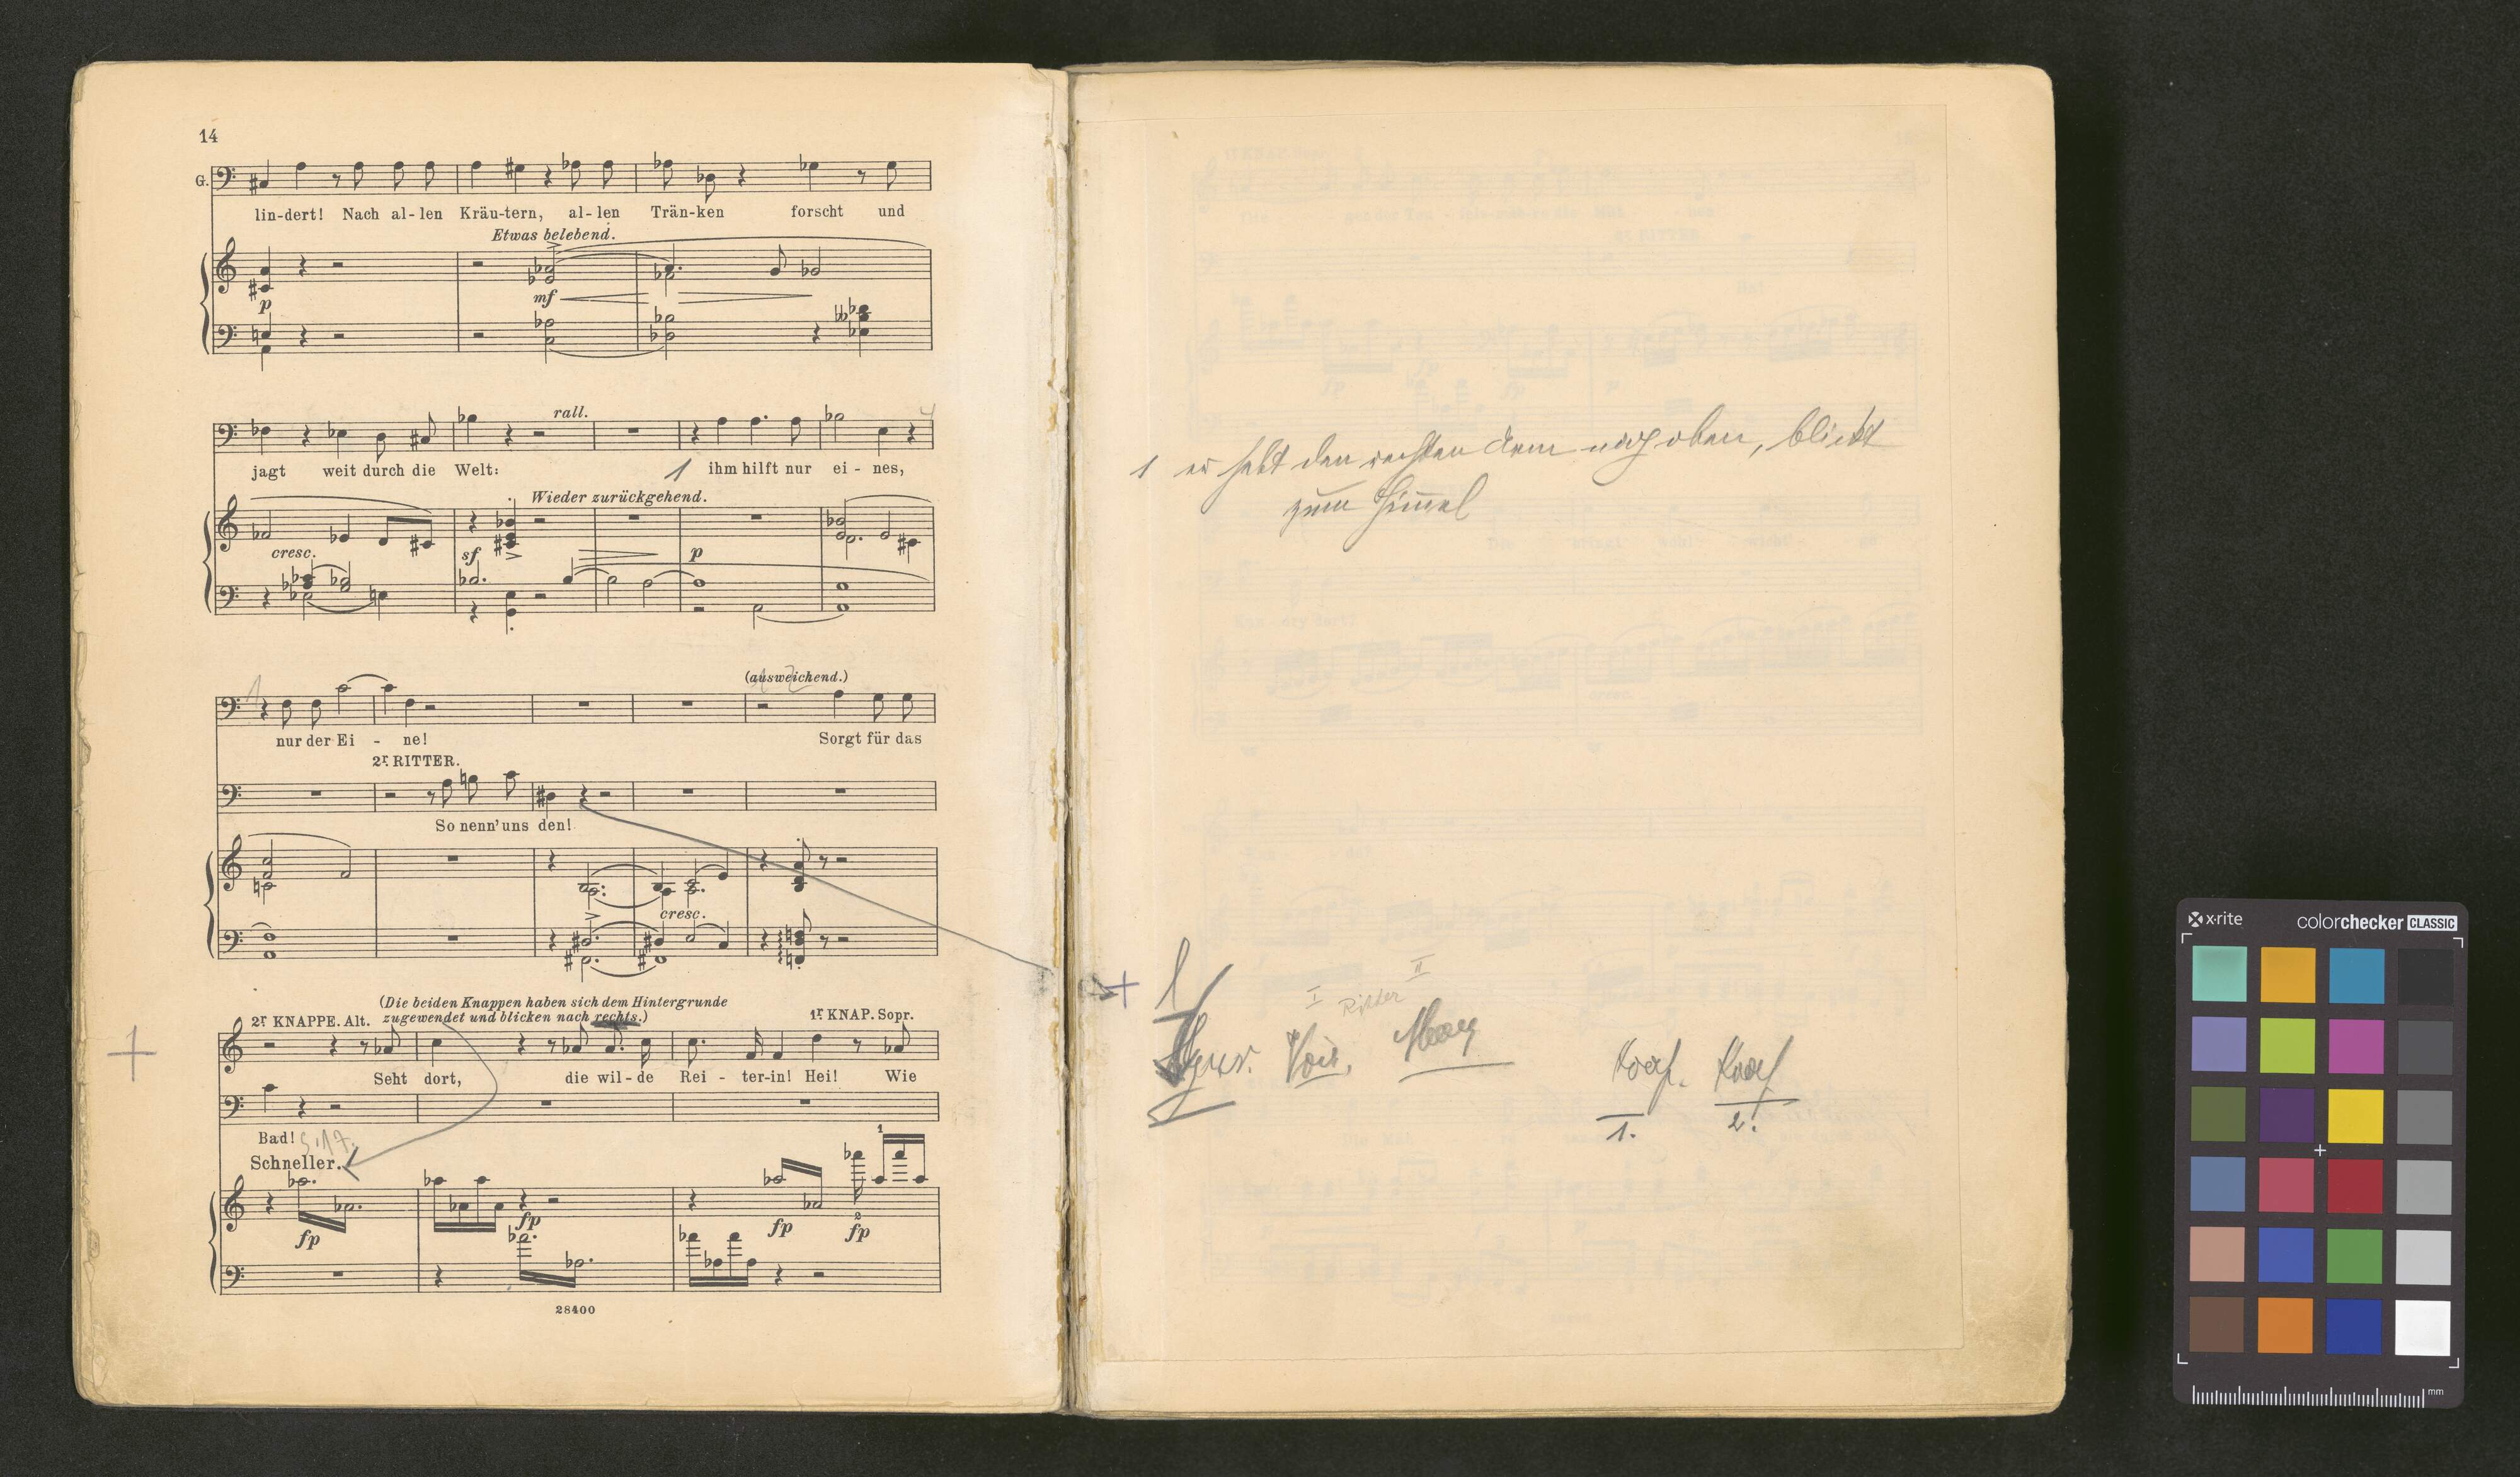 14
G.
lin-dert! Nach al-len Kräu-tern, al-len Trän-ken forscht und
Etwas belebend.
p
mf
rall.
jagt weit durch die Welt: 1 ihm hilft nur ei - nes,
Wieder zurückgehend.
cresc.
sf
p
(ausweichend.)
nur der Ei - ne! Sorgt für das
2r RITTER.
So nenn' uns den!
cresc.
(Die beiden Knappen haben sich dem Hintergrunde
2r KNAPPE. Alt. zugewendet und blicken nach rechts.) 1r KNAP. Sopr.
Seht dort, die wil-de Rei - ter-in! Hei! Wie
Bad! S. 17.
Schneller.
1
fp
fp
fp
2
fp
28400
1 er hebt den rechten Arm nach oben, blickt
zum Himmel
I Ritter II
Knap. Knap
1. 2.
x-rite colorchecker CLASSIC
mm